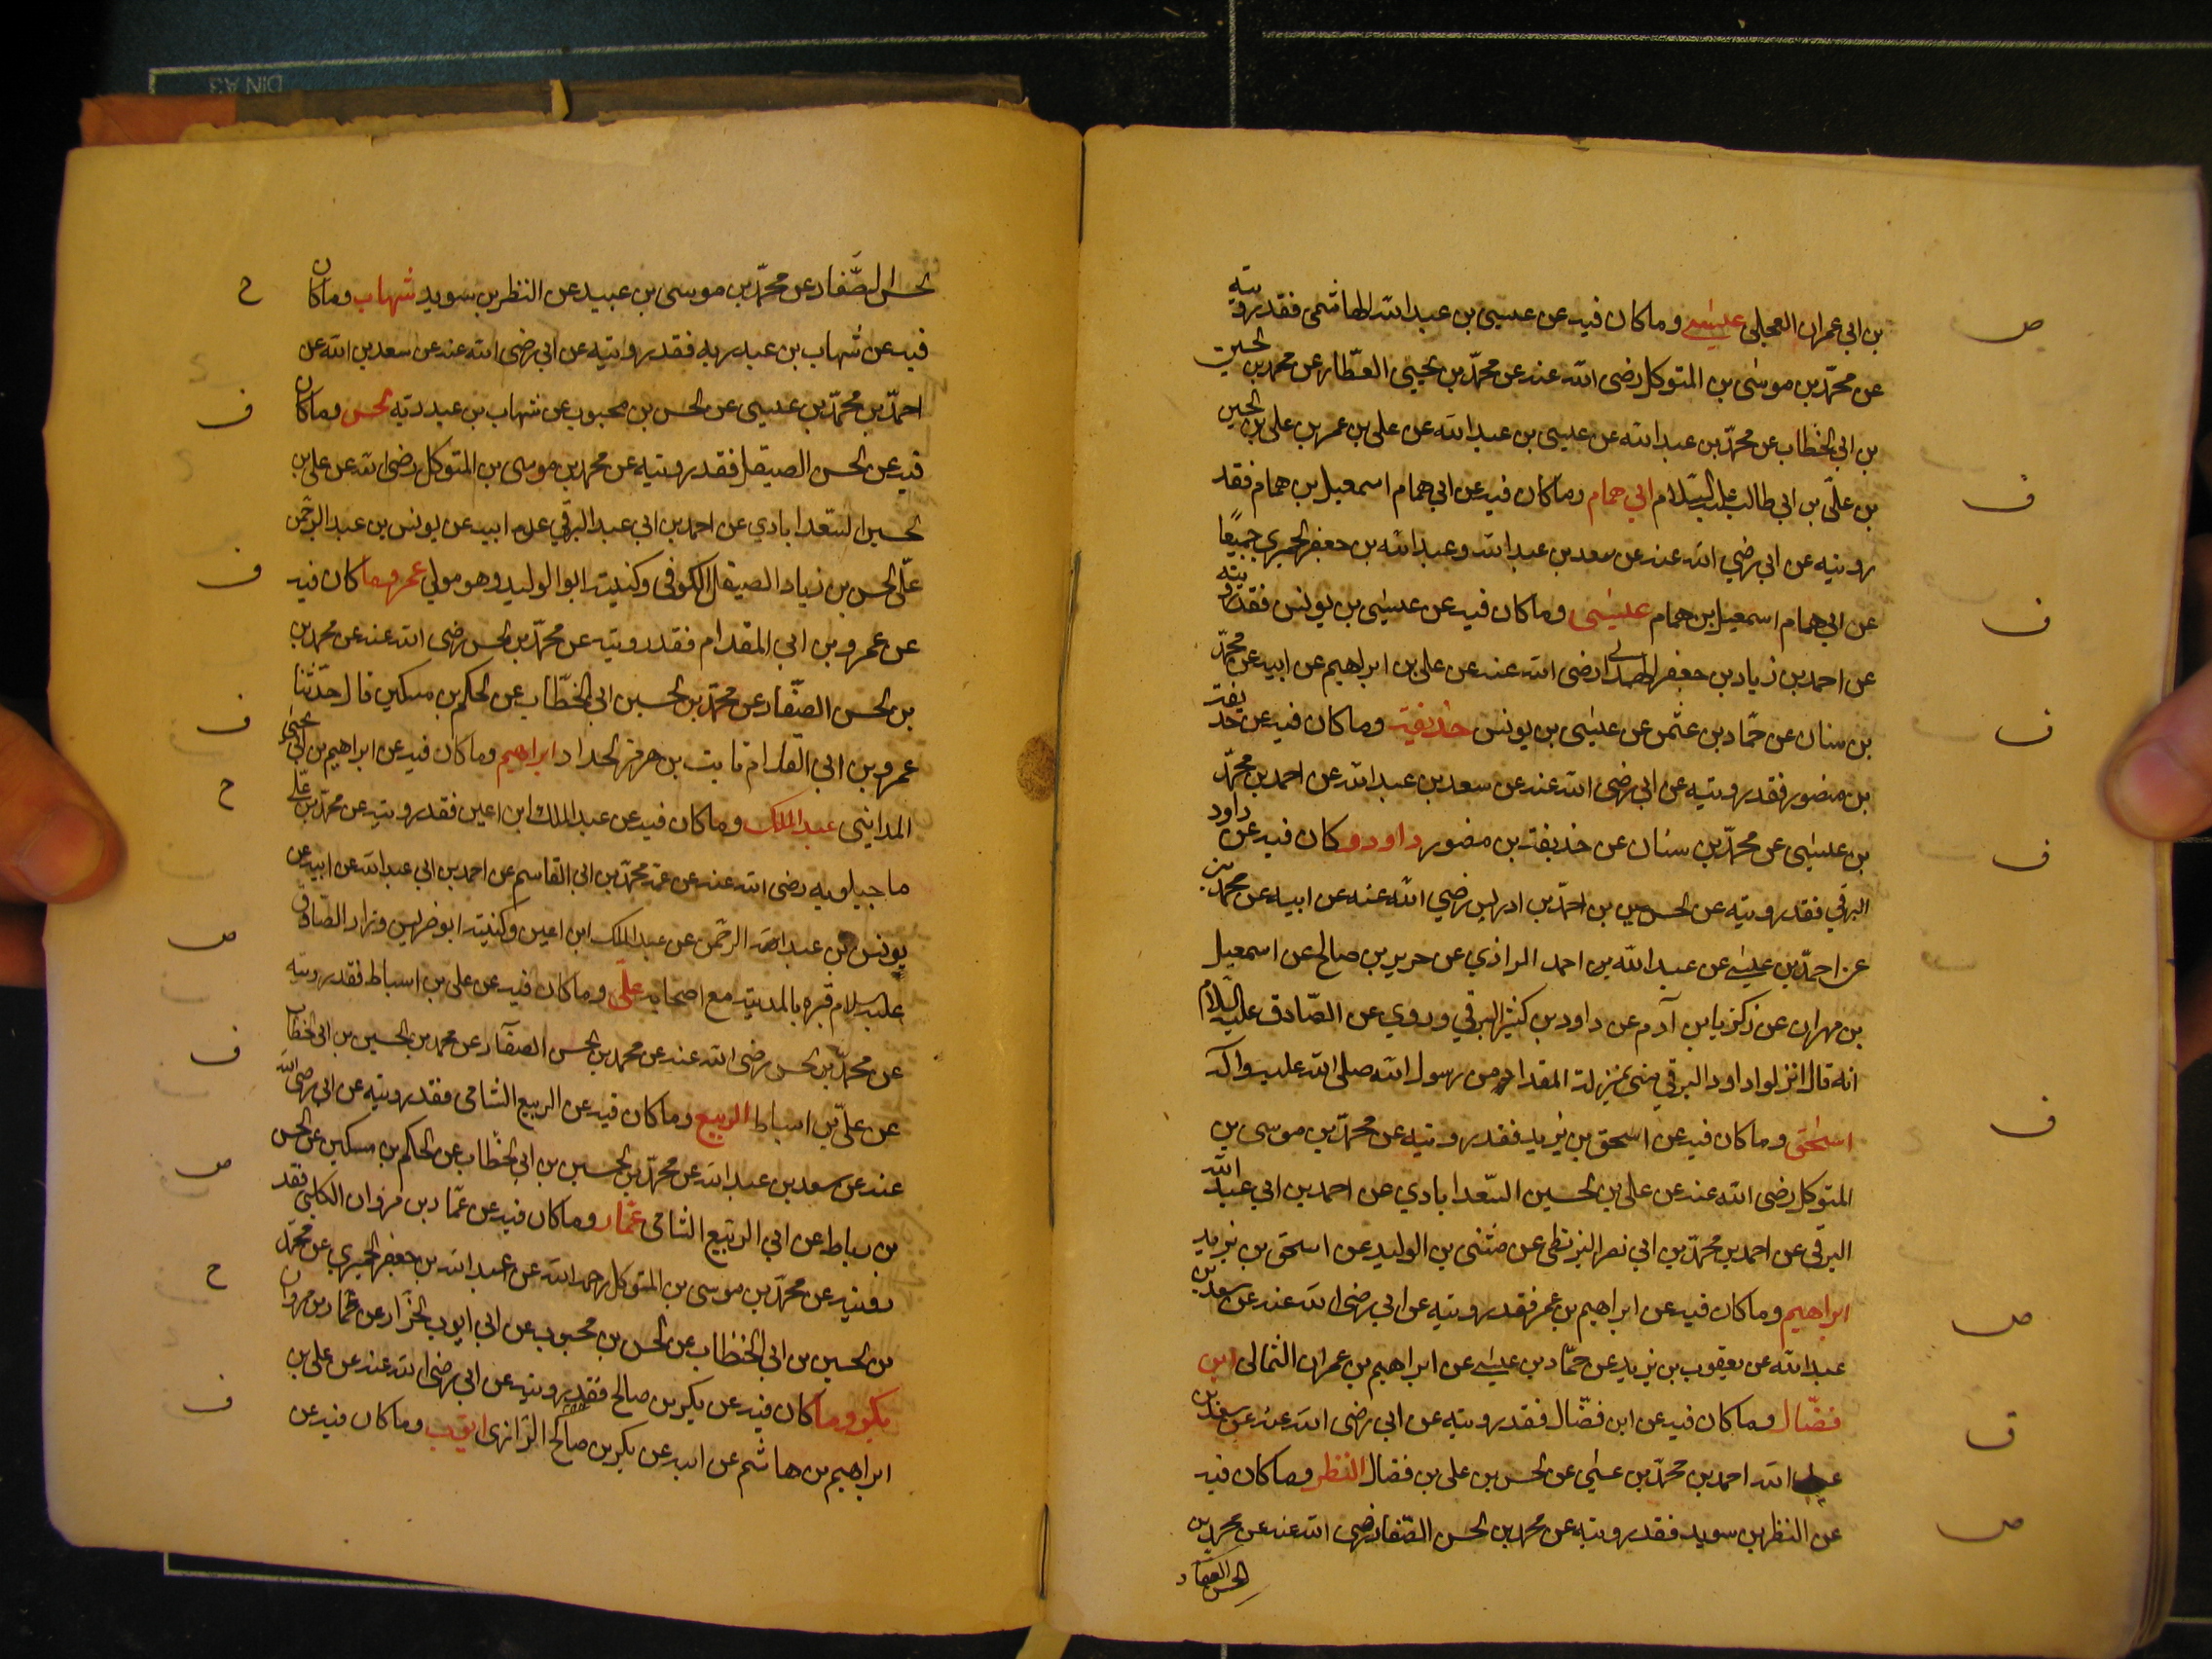 بن ابي عمران العجلي عليسى وما كان فيه عن عيسى بن عبد الله الهاشمى فقد رويته
عن محمّد بن موسى بن المتوكل رضى الله عنه عن محمّد بن يحيى العطّار عن محمد بن الحسين
بن ابي الخطاب عن محمّد بن عبد الله عن عيسى بن عبد الله عن على بن عمر بن على بن الحسين
بن علّي بن ابي طالب عليه السّلام ابي همام وما كان فيه عن ابي همام اسمعيل بن همام فقد
رويته عن ابي رضي الله عنه عن سعد بن عبد الله وعبد الله بن جعفر الحميري جميعًا
عن ابي همام اسمعيل بن همام عليسى وما كان فيه عن عيسى بن يونس فقد رويته
عن احمد بن زياد بن جعفر الهمداني رضى الله عنه عن على بن ابراهيم عن ابيه عن محمّد
بن سنان عن حمّاد بن عثمن عن عيسى بن يونس حذيفة وما كان فيه عن حذيفة
بن منصور فقد رويته عن ابي رضى الله عنه عن سعد بن عبد الله عن احمد بن محمّد
بن عيسى عن محمّد بن سنان عن حذيفة بن منصور داود و كان فيه عن داود
البرقي فقد رويته عن الحسين بن احمّد بن ادريس رضي الله عنه عن ابيه عن محمد بن
عن احمّد بن عليسى عن عبد الله بن احمد الرازي عن حريز بن صالح عن اسمعيل
بن مهران عن زكريا بن آدم عن داود بن كثير البرقي وروي عن الصّادق عليه السّلام
انه قال انزلوا داود البرقي منى بمنزلة المقداد من رسول الله صلى الله عليه واله
اسحٰق وما كان فيه عن اسحق بن يزيد فقد رويته عن محمّد بن موسى بن
المتوكل رضى الله عنه عن على بن الحسين السّعدابادي عن احمد بن ابي عبد الله
البرقي عن احمد بن محمّد بن ابي نصر البزنطى عن مثنى بن الوليد عن اسحق بن يزيد
ابراهيم وما كان فيه عن ابراهيم بن عمر فقد رويته عن ابي رضى الله عنه عن سعد بن
عبد الله عن يعقوب بن يزيد عن حمّاد بن عيسى عن ابراهيم بن عمران الثمالى ابن
فضّال وما كان فيه عن ابن فضّال فقد رويته عن ابي رضى الله عنه عن سعد بن
عبد الله احمد بن محمّد بن عيسى عن الحسن بن على بن فضال النظر وما كان فيه
عن النظر بن سويد فقد رويته عن محمد بن الحسن الصّفار رضى الله عنه عن محمد بن
الحسن الصفار
ص
ف
ف
ف
ف
ف
ص
ف
ص
الحسن الصّفار عن محمّد بن موسى بن عبيد عن النظر بن سويد شهاب وما كان
فيه عن شهاب بن عبد ربه فقد رويته عن ابي رضى الله عنه عن سعد بن الله عن
احمّد بن محمّد بن عيسى عن الحسن بن محبوب عن شهاب بن عبد ربّه الحسن وما كان
فيه عن الحسن الصيقل فقد رويته عن محمد بن موسى بن المتوكل رضى الله عن على بن
الحسين السّعدابادي عن احمد بن ابي عبد البرقي عن ابيه عن يونس بن عبد الرحمٰن
علّى الحسن بن زياد الصيقل الكوفى وكنيته ابو الوليد وهو مولي عمرو ما كان فيه
عن عمرو بن ابي المقدام فقد رويته عن محمّد بن الحسن رضى الله عنه عن محمد بن
بن الحسن الصفّار عن محمّد بن الحسين ابي الخطّاب عن الحكم بن مسكين قال حدّثنا
عمرو بن ابي المقدام ثابت بن هرمز الحداد ابراهيم وما كان فيه عن ابراهيم بن ابي يحيٰى
المداينى عبد الملك وما كان فيه عن عبد الملك ابن اعين فقد رويته عن محمّد بن علّي
ماجيلويه رضى الله عنه عن عمّه محمّد بن ابي القاسم عن احمد بن ابي عبد الله عن ابيه عن
يونس بن عبد الله الرحمٰن عن عبد الملك ابن اعين وكنيته ابو ضريس وزار الصّادق
عليه سلام قبره بالمدينة مع اصحابه علّى وما كان فيه عن على بن اسباط فقد رويته
عن محمّد بن الحسن رضى الله عنه عن محمد بن الحسن الصفّار عن محمد بن الحسين بن ابي الخطاب
عن علّي بن اسباط الربيع وما كان فيه عن الربيع الشامى فقد رويته عن ابي رضى الله
عنه عن سعد بن عبد الله عن محمّد بن الحسين بن ابي الخطّاب عن الحكم بن مسكين عن الحسن
بن رباط عن ابي الربيع الشامى عمّار وما كان فيه عن عمّار بن مروان الكلبي فقد
رويته عن محمّد بن موسى بن المتوكل رحمه الله عن عبد الله بن جعفر الحميري عن محمّد
بن الحسين بن ابي الخطّاب عن الحسن بن محبوب عن ابي ايوب الخزّار عن عمّار بن مروان
بكر وما كان فيه عن بكر بن صالح فقد رويته عن ابي رضى الله عنه عن على بن
ابراهيم بن هاشم عن ابيه عن بكر بن صالح الرّازى ايوب وما كان فيه عن
ح
ف
ف
ف
ح
ص
ف
ص
ح
ف